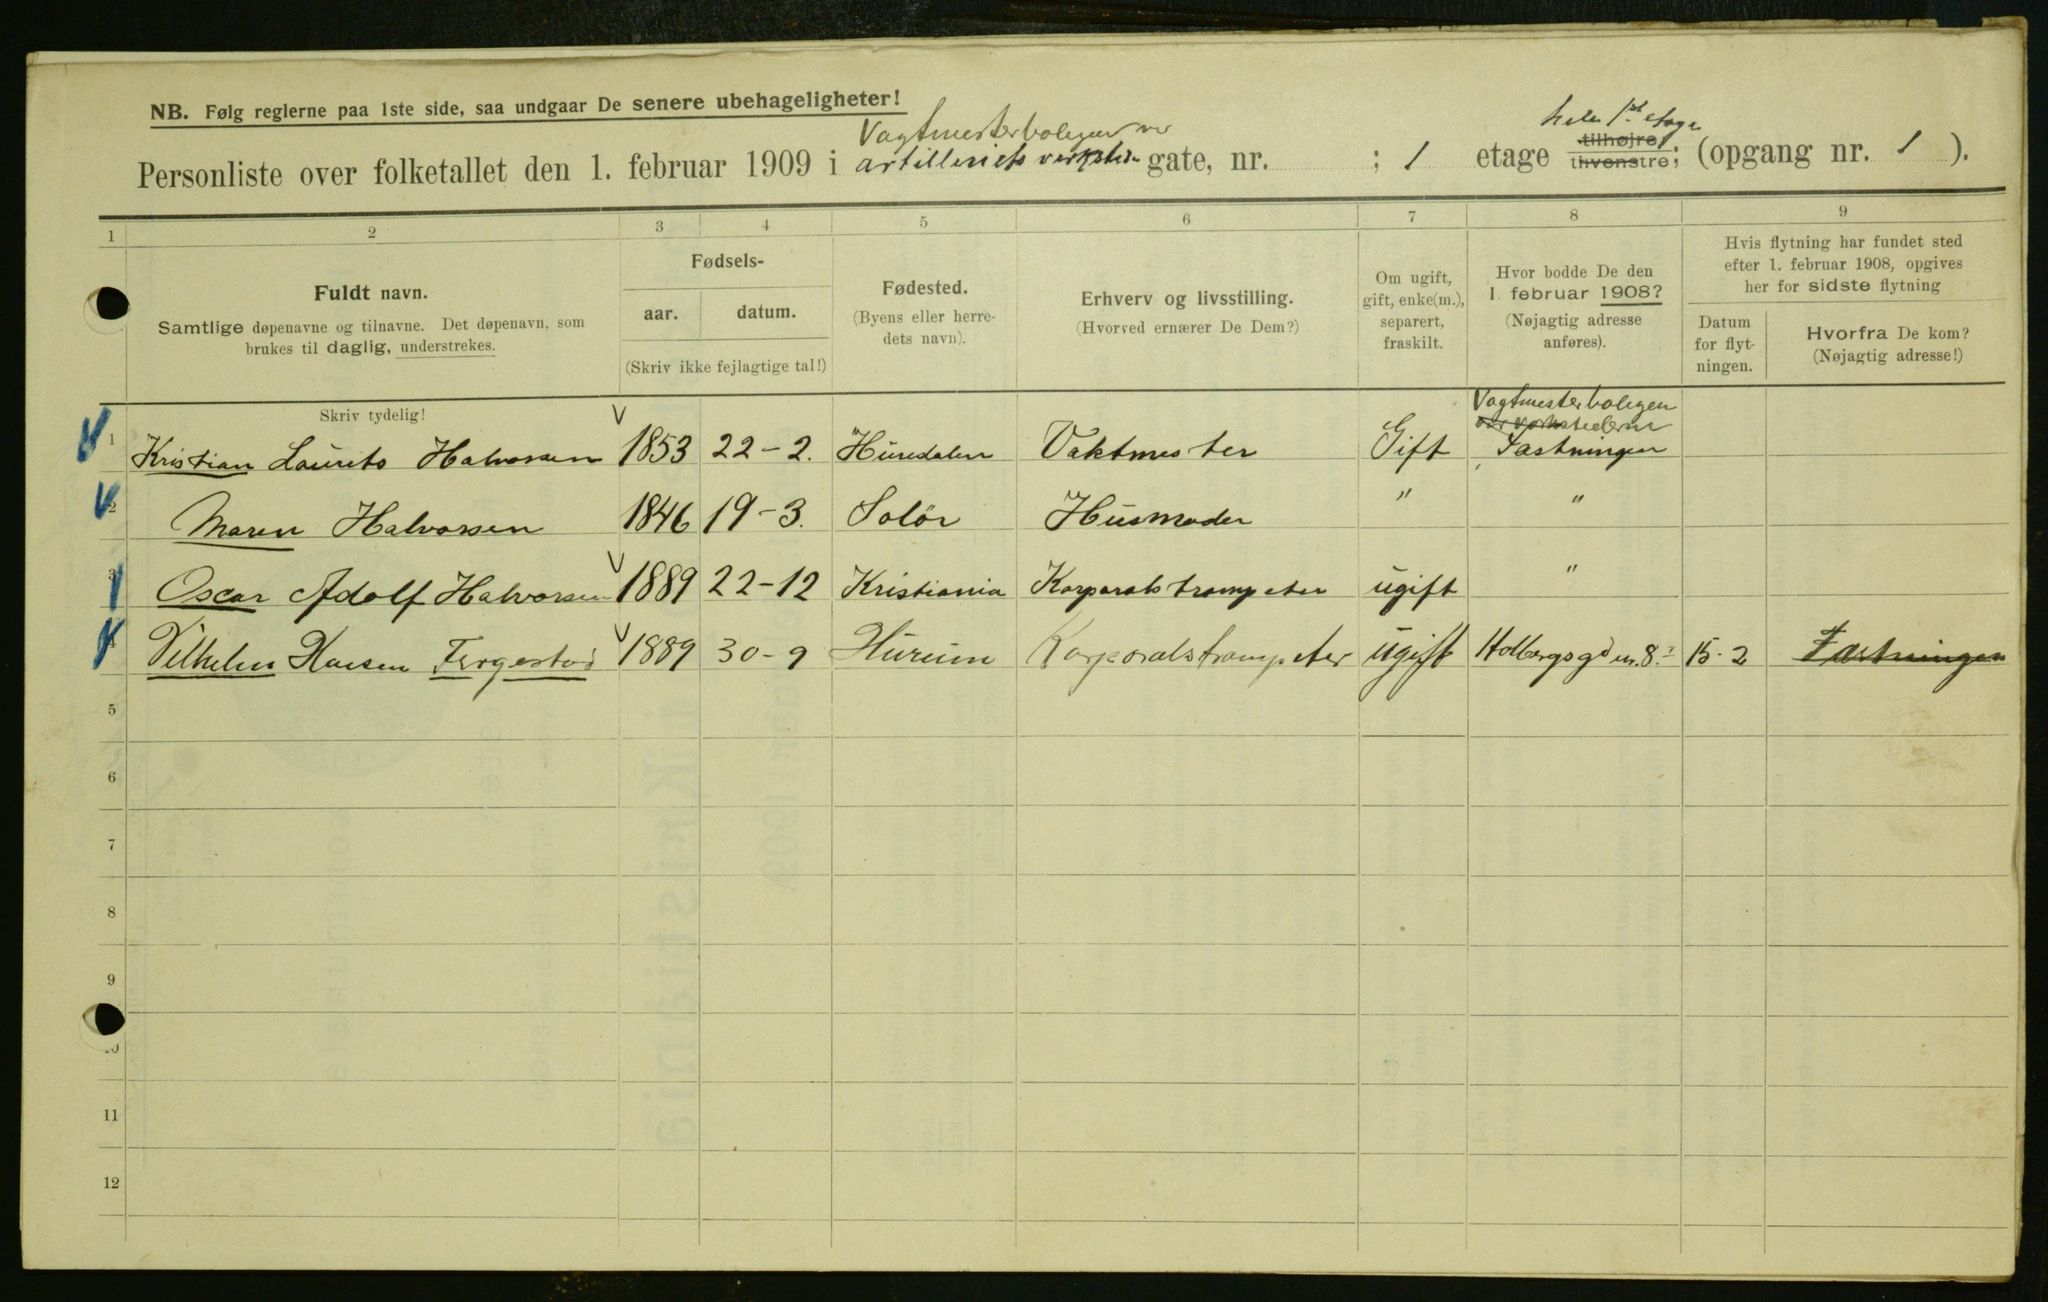 NB. Følg reglerne paa 1ste side, saa undgaar De senere ubehageligheter!
Vagtmesterboligen ved hele 1st etage
Personliste over folketallet den 1. februar 1909 i artilleriets gate, nr. ; 1 etage tilhøjre, tilvenstre; (opgang nr. 1 ).
1 2 3 4 5 6 7 8 9
Fuldt navn.
Samtlige døpenavne og tilnavne. Det døpenavn, som
brukes til daglig, understrekes.
Skriv tydelig!
Fødsels-
aar. datum.
(Skriv ikke fejlagtige tal!)
Fødested.
(Byens eller herre-
dets navn).
Erhverv og livsstilling.
(Hvorved ernærer De Dem?)
Om ugift,
gift, enke(m.),
separert,
fraskilt.
Hvor bodde De den
1. februar 1908?
(Nøjagtig adresse
anføres).
Hvis flytning har fundet sted
efter 1. februar 1908, opgives
her for sidste flytning
Datum
for flyt-
ningen.
Hvorfra De kom?
(Nøjagtig adresse!)
Vagtmesterboligen
1 Kristian Laurits Halvorsen 1853 22-2. Huredalen Vaktmester Gift Fæstningen
2 Maren Halvorsen 1846 19-3. Solör Husmoder " "
3 Oscar Adolf Halvorsen 1889 22-12 Kristiania Korporalstrompeter ugift "
4 Vilhelm Hansen Fergestad 1889 30-9 Hurum Korporalstrompeter ugift Holbergsgd nr. 8. 15-2 Fæstningen
5
6
7
8
9
10
11
12